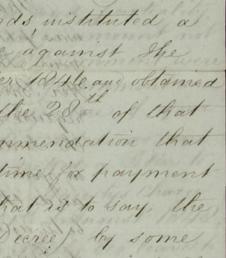 nds, instituted a
e against the
er 1846 and obtained
the 28th of that
ommendation that
time for payment
hat is to say the
Decree) by some